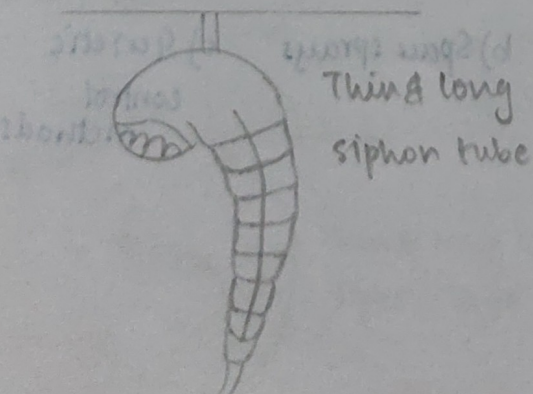 Thin & long
siphon tube